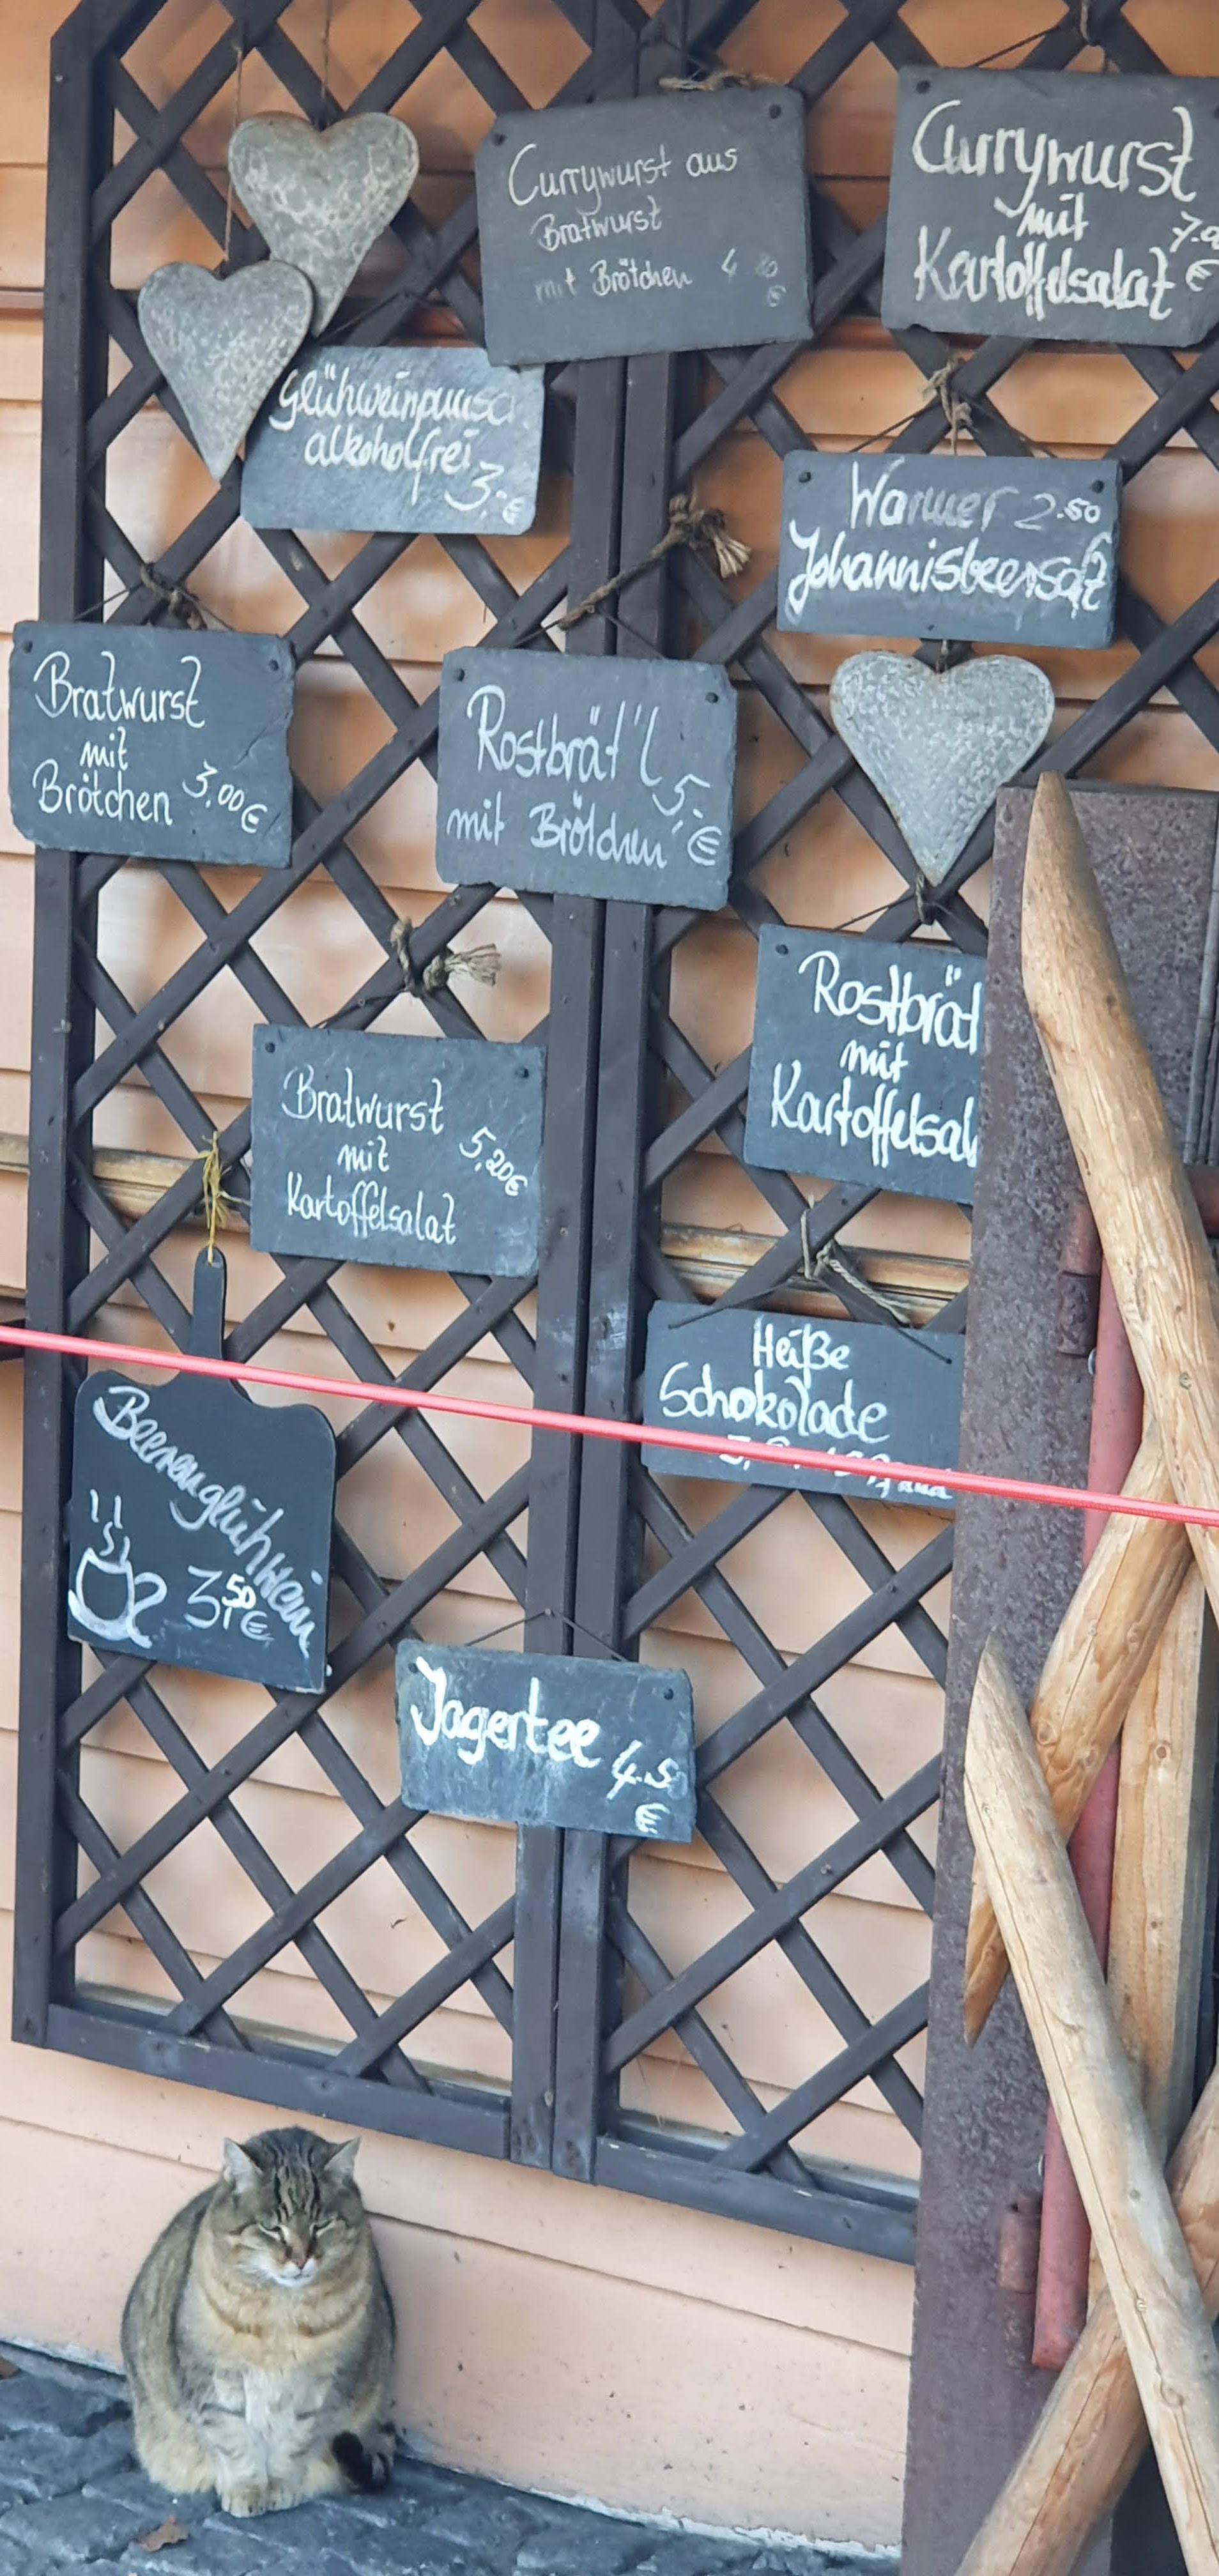 Currywurst aus
Bratwurst
mit Brötchen 4.80
€
Currywurst
mit
Kartoffelsalat €
Glühweinpunsc
alkoholfrei
3,-€
Warmer 2.50
Johannisbeersaft
Bratwurst
mit
Brötchen 3,00€
Rostbrät'l
mit Brötchen 5,-€
Rostbrät
mit
Kartoffelsal
Bratwurst
mit 5,20€
Kartoffelsalat
Heiße
Schokolade
Beerenglühwein
3,50€
Jagertee 4.5
€